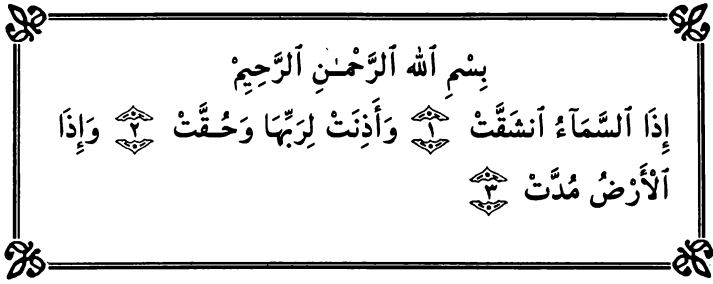 بِسْمِ ٱللهِ ٱلرَّحْمَـٰنِ ٱلرَّحِيمِْ
إِذَا ٱلسَّمَآءُ ٱنشَقَّتْ ١ وَأَذِنَتْ لِرَبِّهَا وَحُـقَّتْ ٢ وَإِذَا
ٱلْأَرْضُ مُدَّتْ ٣